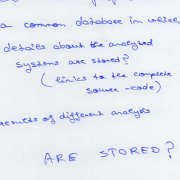 a common database in which
details about the analyzed
systems are stored?
( links to the complete
source-code)
results of different analysis
ARE STORED?